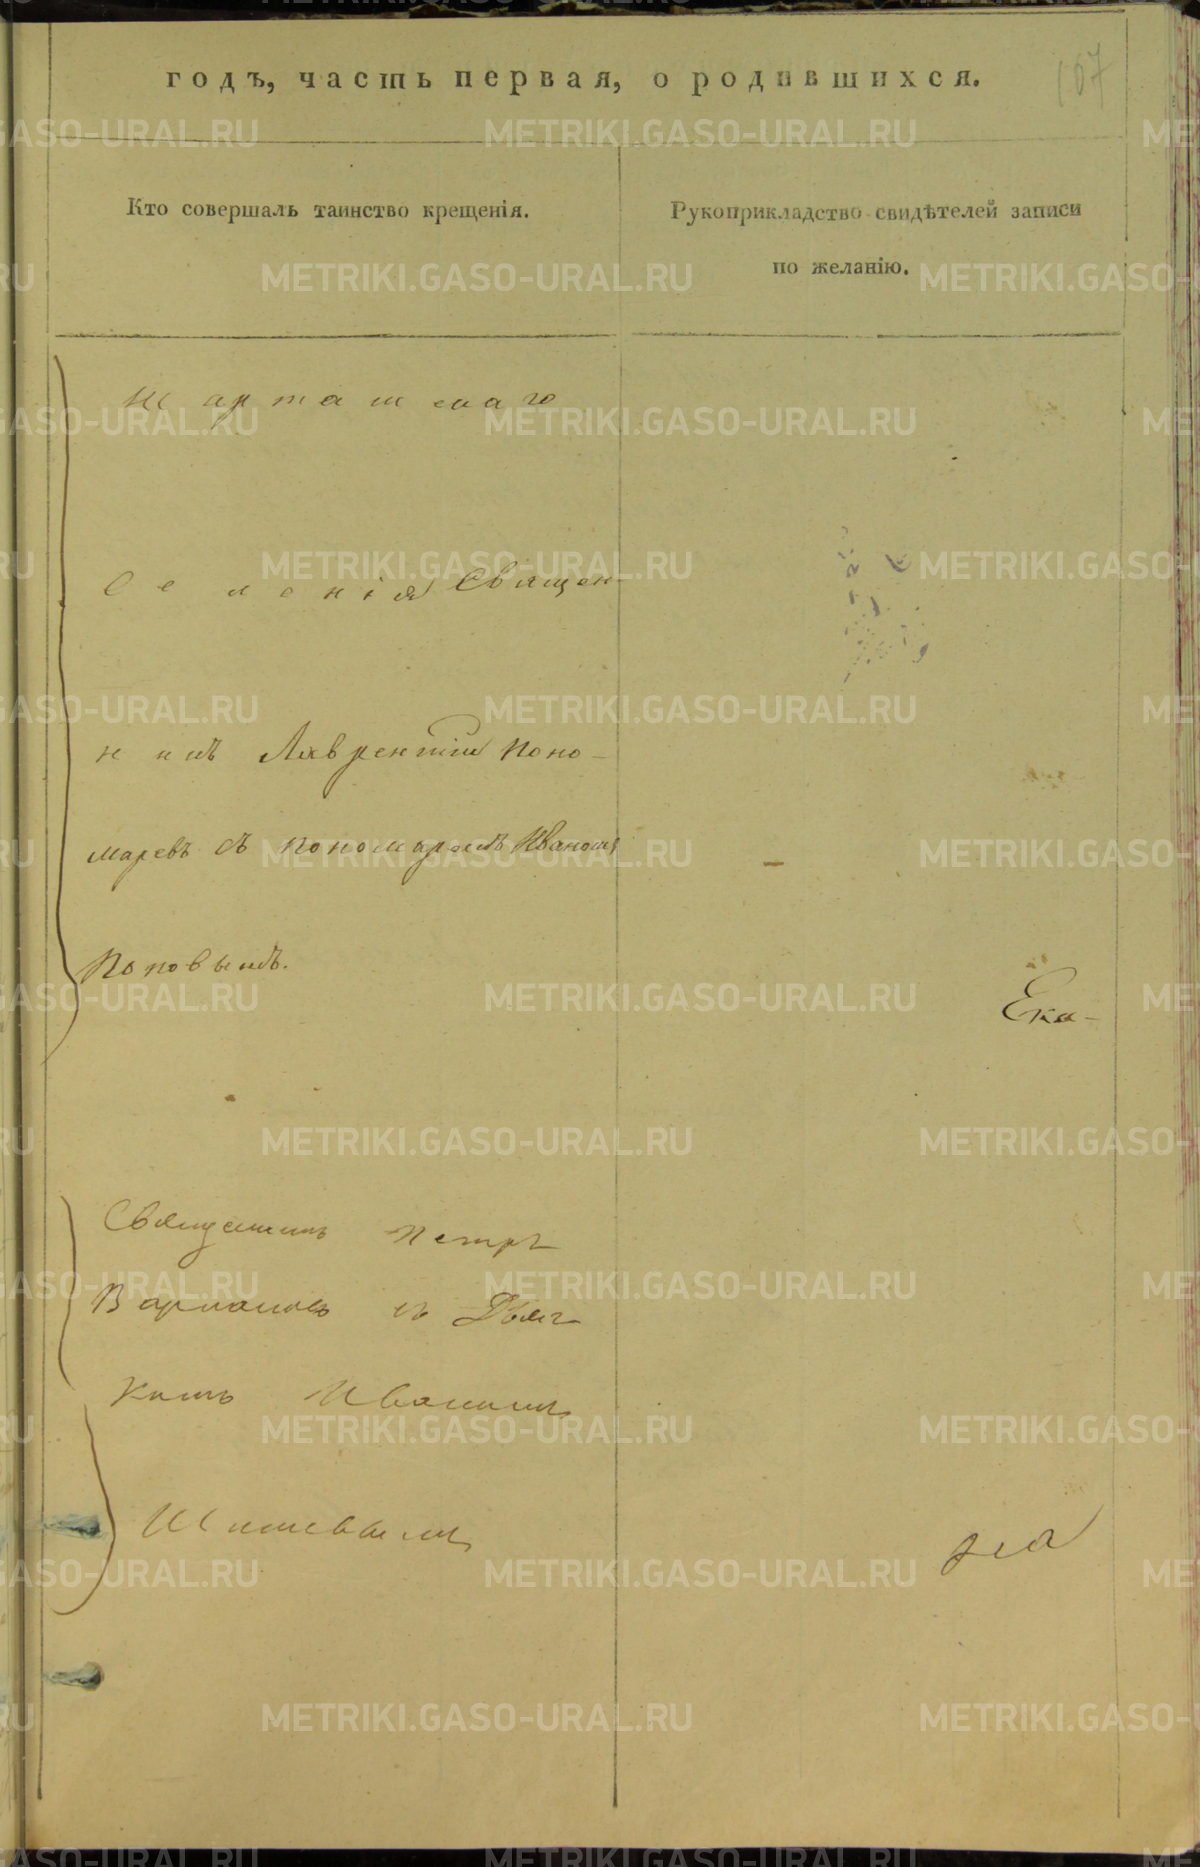 годъ, часть первая, о родившихся.
107
Кто совершалъ таинство крещенія.
Рукоприкладство свидѣтелей записи
по желанію.
Карташскаго
Селенія Священ-
никъ Лаврентій Поно-
маревъ съ пономаремъ Иваномъ
Поповымъ.
Ека-
Священникъ Петръ
съ Дьяч
комъ Иваномъ
METRIKI.GASO-URAL.RU